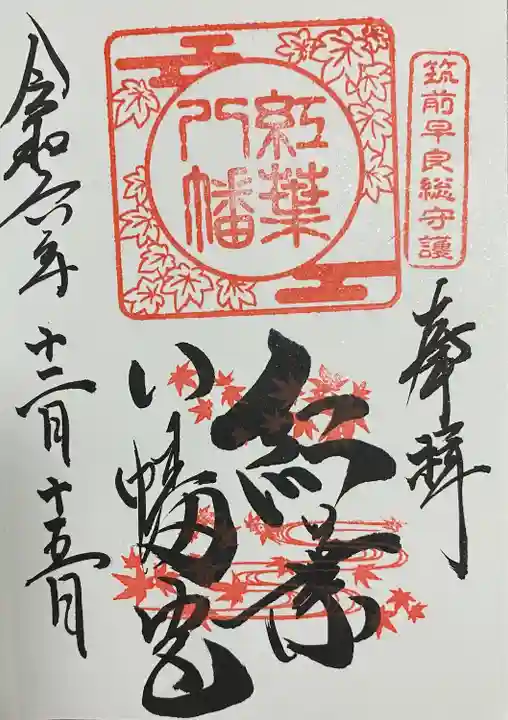 筑前早良総守護
奉拝
紅葉
八幡
紅葉
八幡宮
令和六年 十二月 十五日